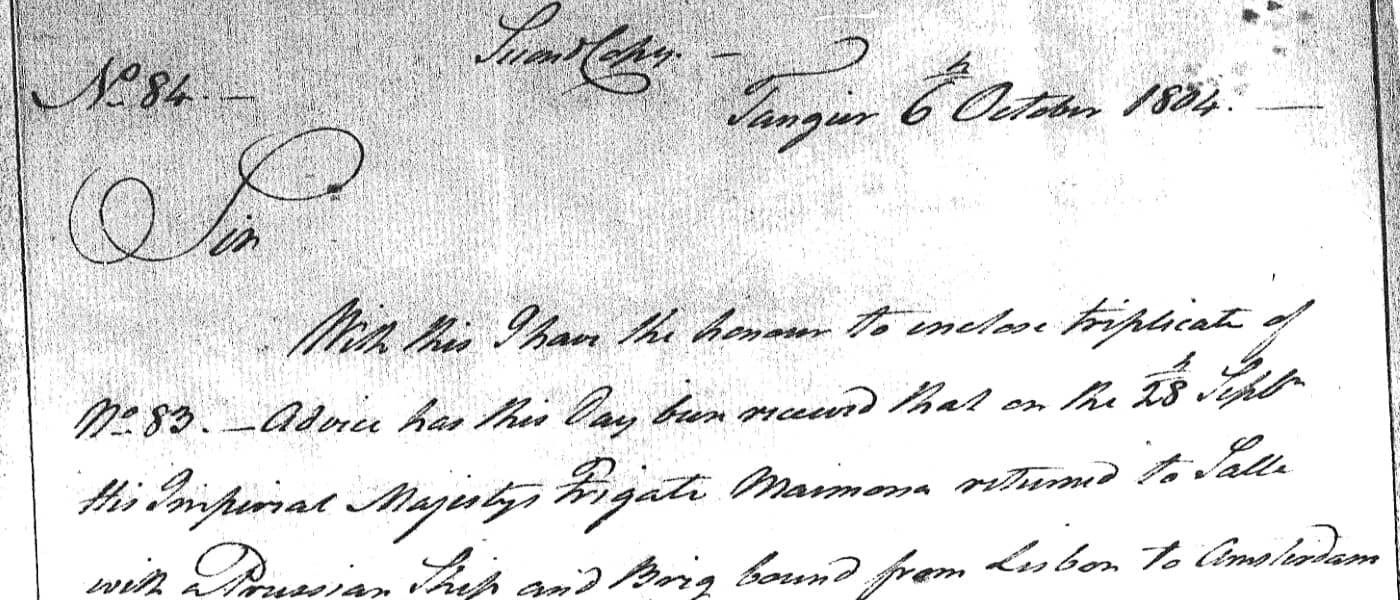 Second Copy. —
No. 84. —
Tangier 6th October 1804. —
Sir
With this I have the honour to enclose triplicate of
No. 83. — Advice has this Day been received that on the 28th Septr
His Imperial Majestys Frigate Maimona returned to Salle
with a Prussian Ship and Brig bound from Lisbon to Amsterdam